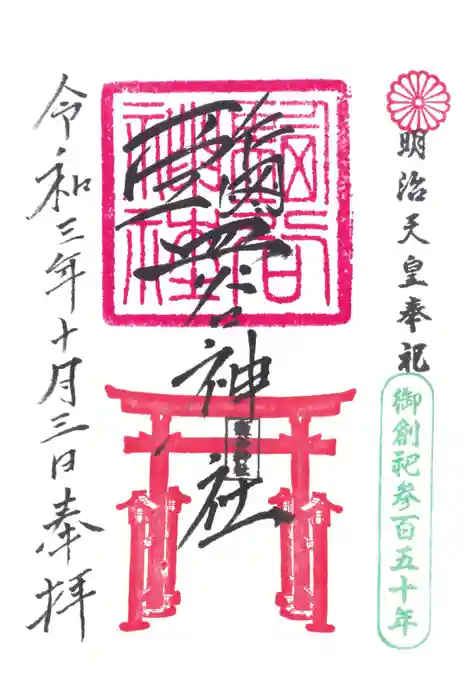 明治天皇奉祀
御創祀参百五十年
鹽谷神社
令和三年十月三日奉拝